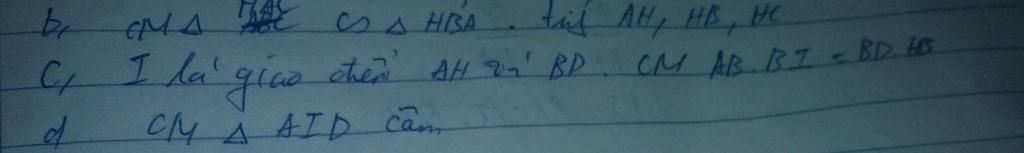 b, CM Δ HAC ∽ Δ HBA. tính AH, HB, HC
C, I là giao điểm AH và BD. CM AB.BI = BD.HB
d CM Δ AID cân